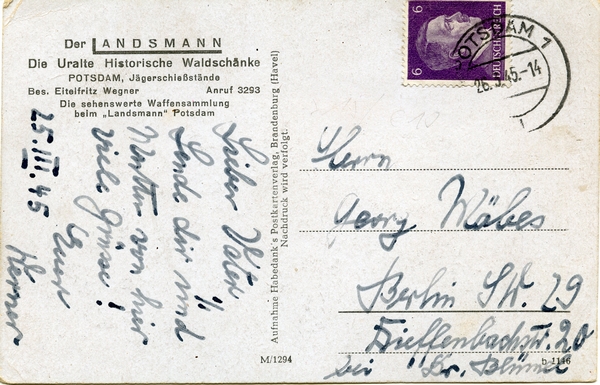 Der LANDSMANN
Die Uralte Historische Waldschänke
POTSDAM, Jägerschießstände
Bes. Eitelfritz Wegner Anruf 3293
Die sehenswerte Waffensammlung
beim „Landsmann" Potsdam
25.III.45
Lieber Vater!
Sende dir und
Mutter von hier
viele Grüsse!
Euer
Werner
Aufnahme Habedank's Postkartenverlag, Brandenburg (Havel)
Nachdruck wird verfolgt.
M/1294
6
6
DEUTSCHES REICH
POTSDAM 1
26.3.45.-14
Herrn
Georg Mäbes
Berlin SW. 29
Dieffenbachstr. 20
bei
b-1146